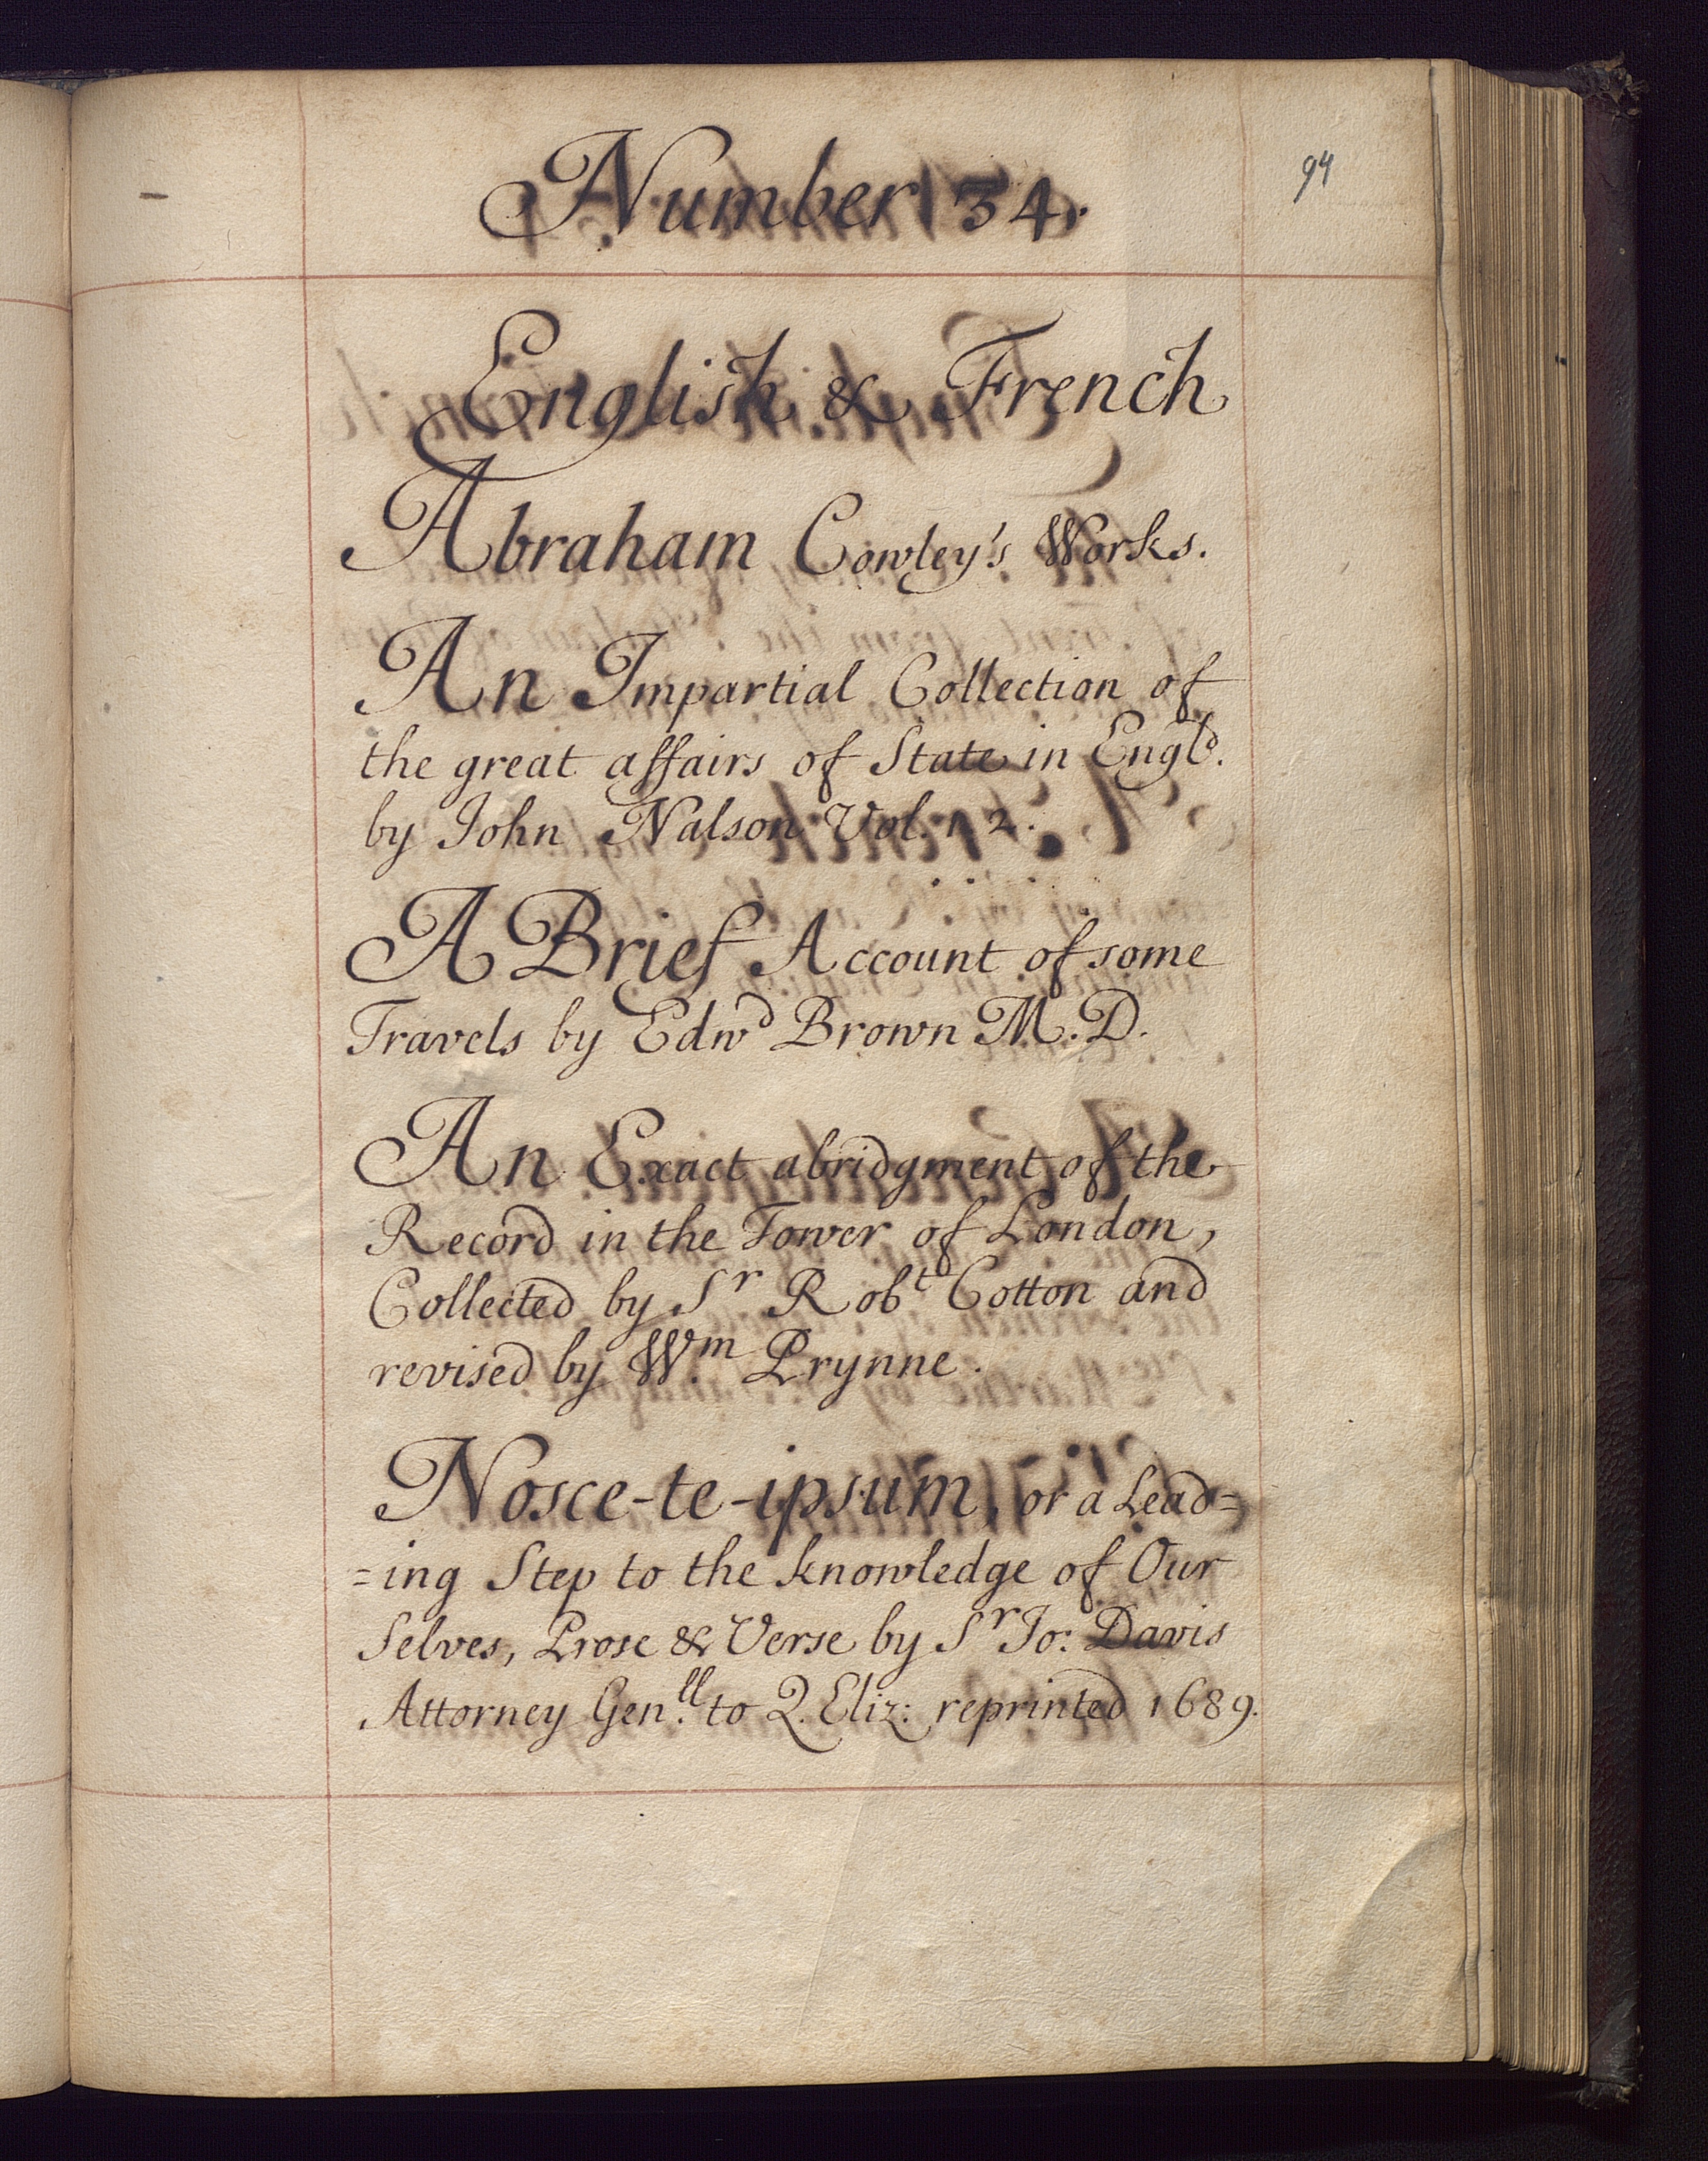 94
Number 34.
English & French
Abraham Cowley's Works.
An Impartial Collection of
the great affairs of State in Engld.
by John Nalson Vol. 1. 2.
A Brief Account of some
Travels by Edwd Brown M.D.
An Exact abridgment of the
Record in the Tower of London,
Collected by Sr Robt Cotton and
revised by Wm. Prynne.
Nosce-te-ipsum, or a Lead=
=ing Step to the knowledge of Our
Selves, Prose & Verse by Sr Jo: Davis
Attorney Genll. to Q. Eliz: reprinted 1689.